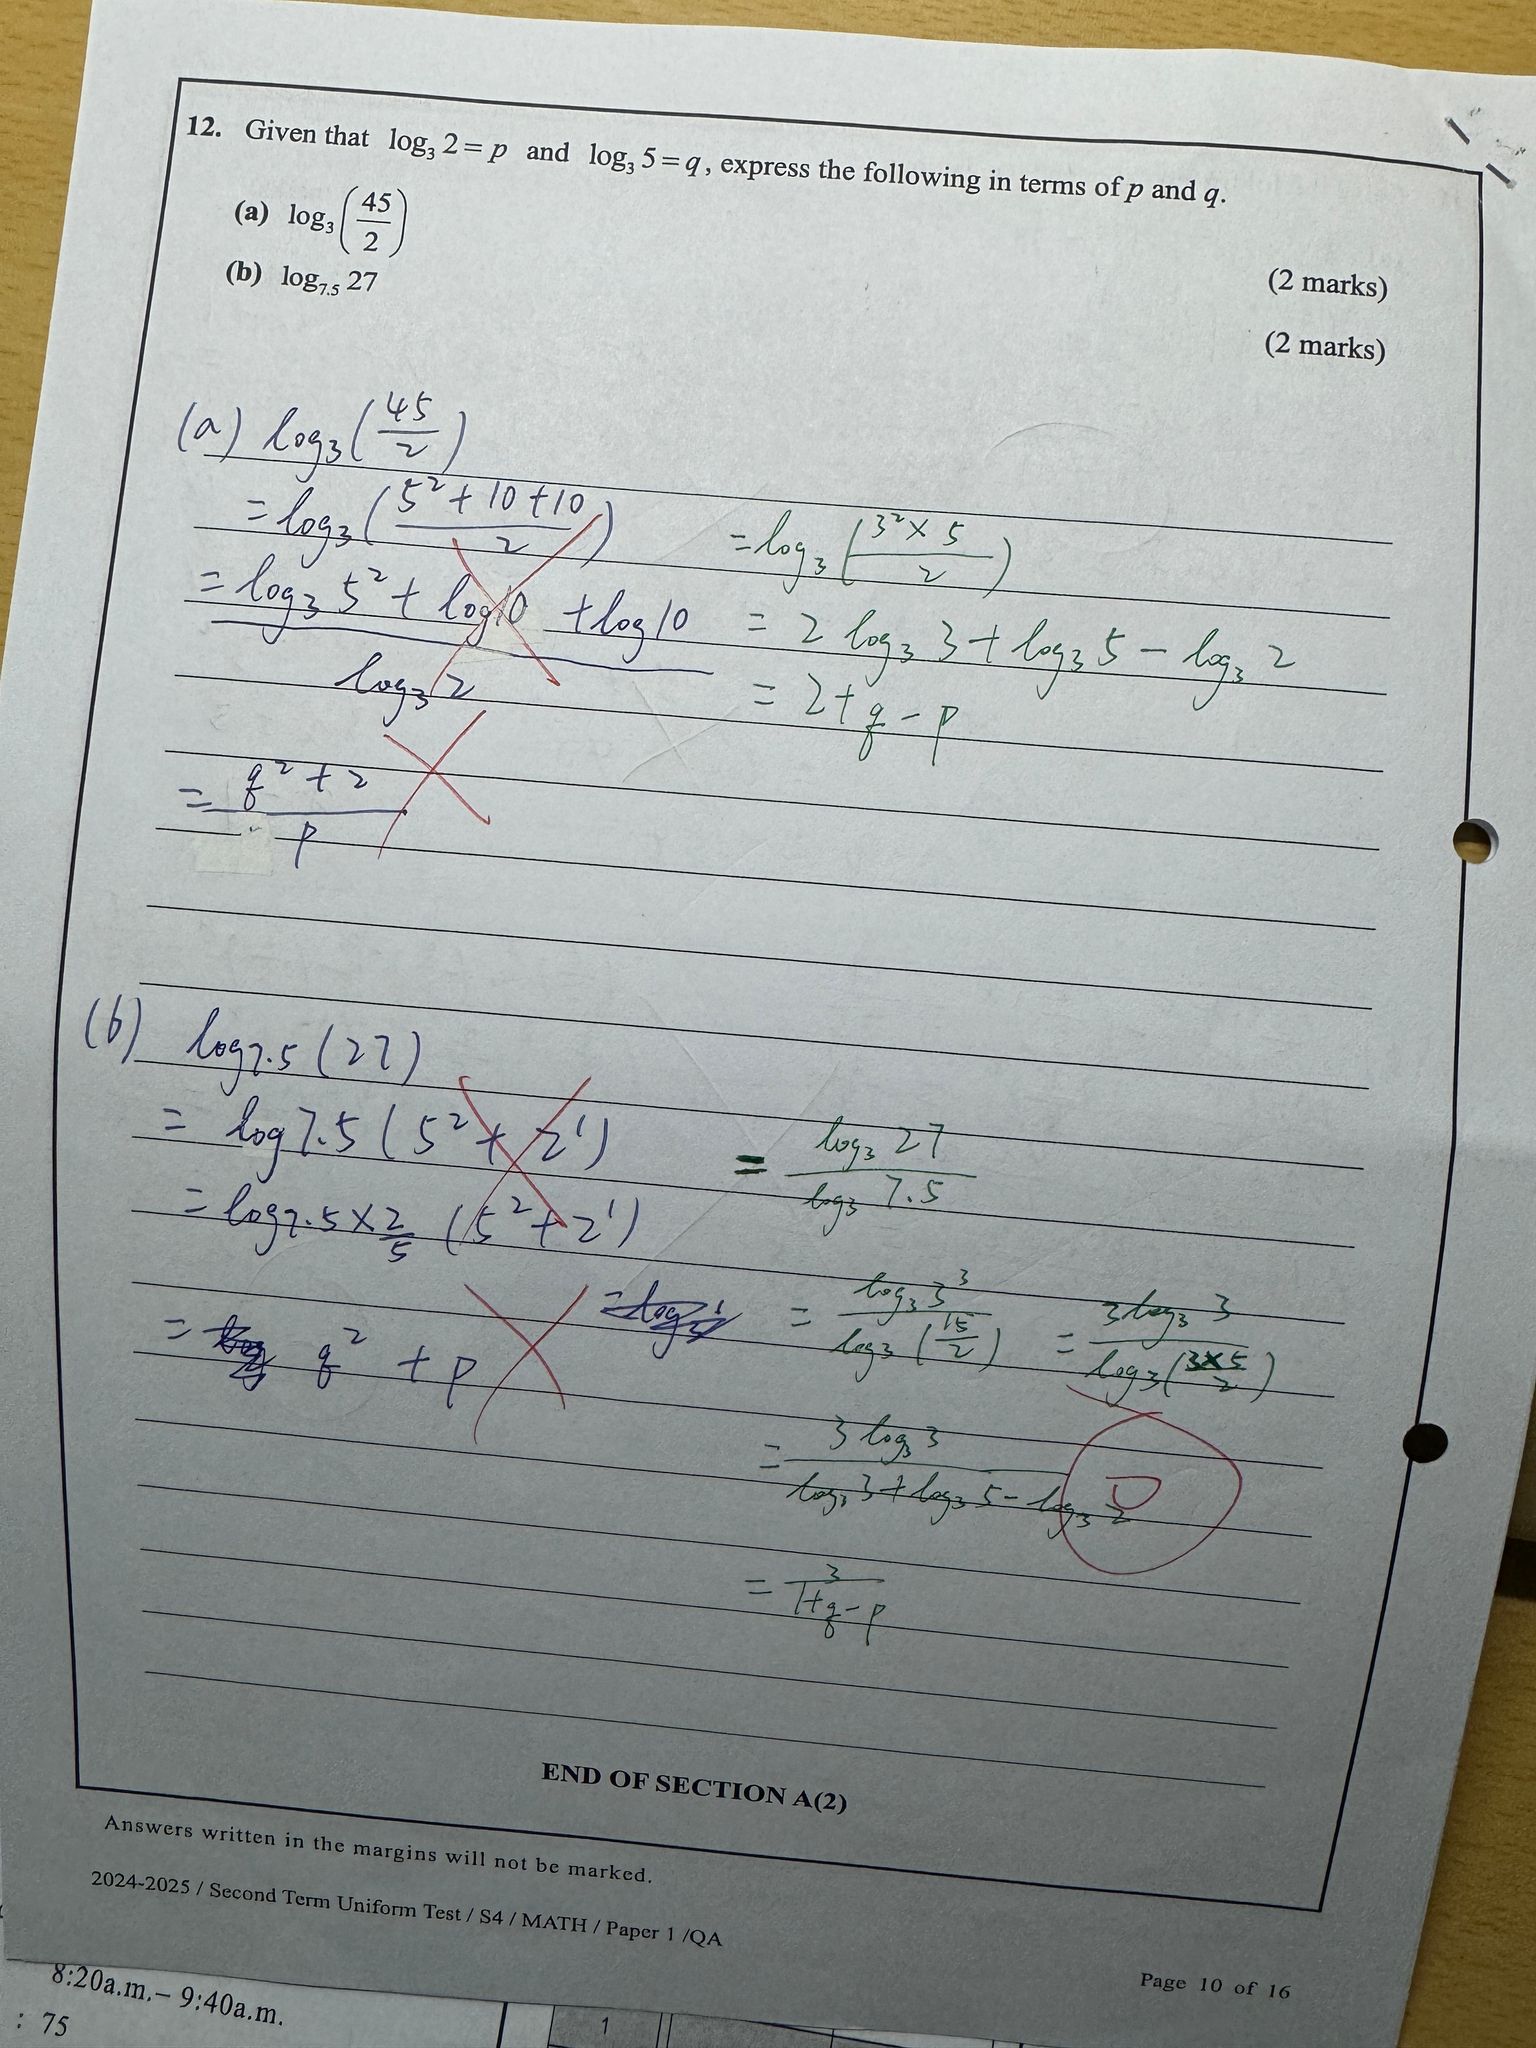 12. Given that log₃ 2 = p and log₃ 5 = q, express the following in terms of p and q.
(a) log₃ (45/2)
(2 marks)
(b) log₇.₅ 27
(2 marks)
(a) log₃ (45/2)
= log₃ ((5² + 10 + 10)/2)
= (log₃ 5² + log 10 + log 10)/(log₃ 2)
= (q² + 2)/p
= log₃ ((3² × 5)/2)
= 2 log₃ 3 + log₃ 5 − log₃ 2
= 2 + q − p
(b) log₇.₅ (27)
= log 7.5 (5² + 2¹)
= log₇.₅ × 2/5 (5² + 2¹)
= q² + p
= (log₃ 27)/(log₃ 7.5)
= (log₃ 3³)/(log₃ (15/2)) = (3 log₃ 3)/(log₃ ((3×5)/2))
= (3 log₃ 3)/(log₃ 3 + log₃ 5 − log₃ 2)
0
= 3/(1 + q − p)
END OF SECTION A(2)
Answers written in the margins will not be marked.
2024-2025 / Second Term Uniform Test / S4 / MATH / Paper 1 /QA
Page 10 of 16
8:20a.m.– 9:40a.m.
: 75
1